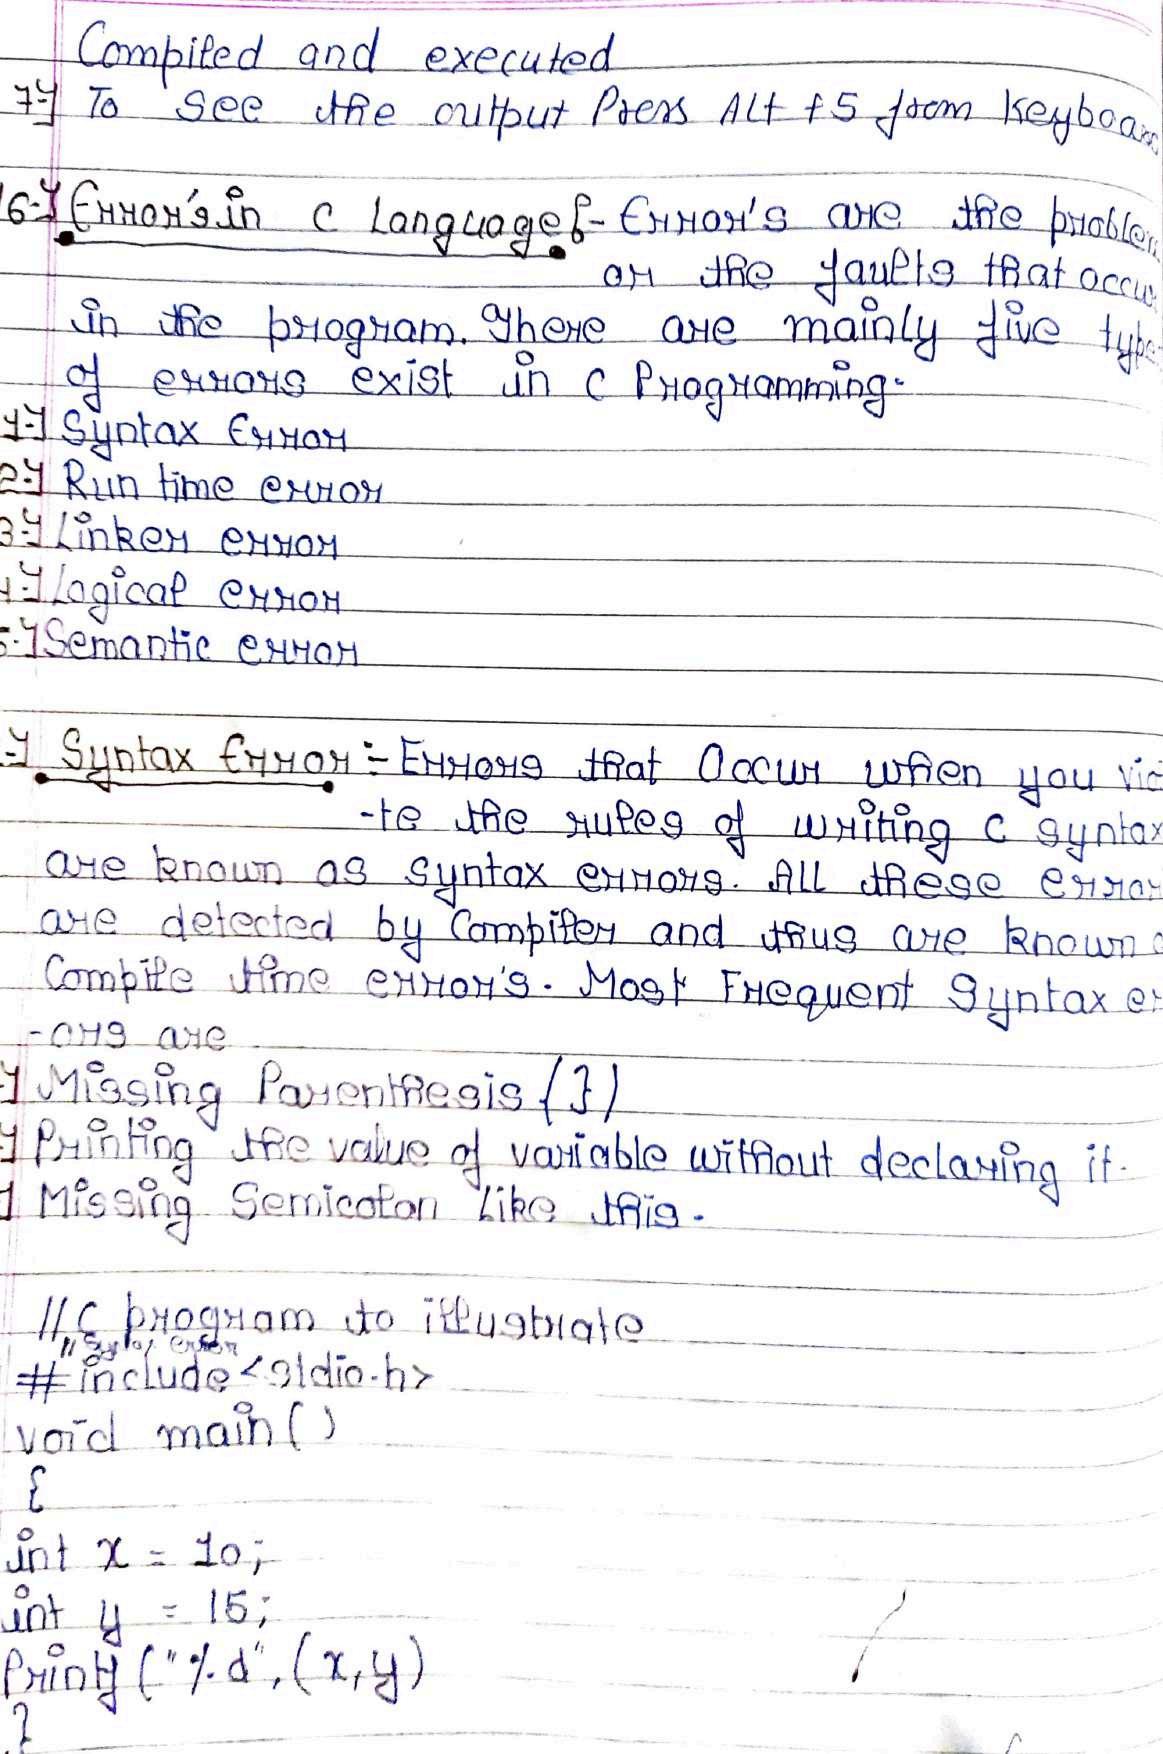 Compiled and executed
7-] To See the output Press Alt +5 from Keyboa
16-] Error's in C Language:- Error's are the proble
or the faults that occu
in the program. There are mainly five type
of errors exist in C Programming.
1-] Syntax Error
2-] Run time error
3-] Linker error
4-] Logical error
5-] Semantic error
-] Syntax Error :- Errors that Occur when you vio
-te the rules of writing C syntax
are known as syntax errors. All these error
are detected by Compiler and thus are known a
Compile time error's. Most Frequent Syntax er
-ors are
-] Missing Parenthesis (})
-] Printing the value of variable without declaring it.
] Missing Semicolon like this.
//C program to illustrate
//Syntax error
#include<stdio.h>
void main()
{
int x = 10;
int y = 15;
Printf ("%d",(x,y)
}